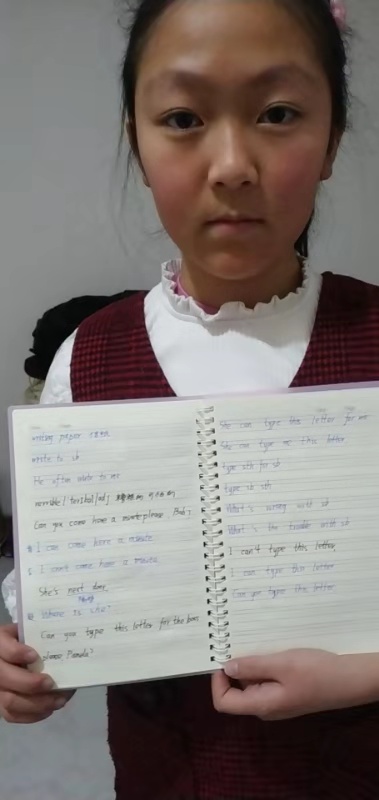 writing paper
write to sb
He often wrote to me
terrible
Can you come here a minute please, Bob?
I can come here a minute
I can't come here a minute
She's next door
Where is she?
Can you type this letter for the boss
please Pamela?
She can type this letter for me
She can type me this letter
type sth for sb
type sb sth
What's wrong with sb
What's the trouble with sb
I can't type this letter
I can type this letter
Can you type this letter